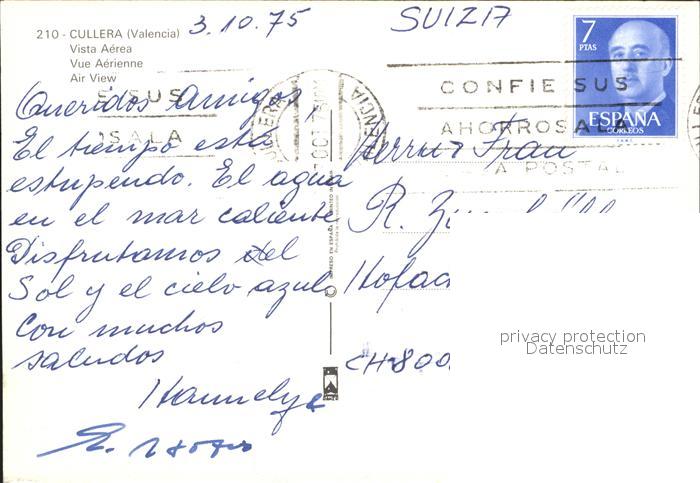 210 - CULLERA (Valencia)
Vista Aérea
Vue Aérienne
Air View
3.10.75
SUIZA
7
PTAS
ESPAÑA
CORREOS
CONFIE SUS
AHORROS A LA
CAJA POSTAL
E SUS
Queridos Amigos,
El tiempo está
estupendo. El agua
en el mar caliente
Disfrutamos del
Sol y el cielo azul
Con muchos
saludos
Herrn + Frau
R.
CH-800
privacy protection
Datenschutz